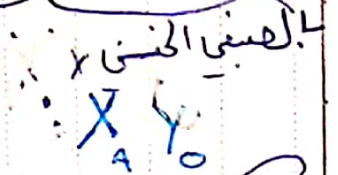 بالصبغي الجنسي X
X_A Y_O